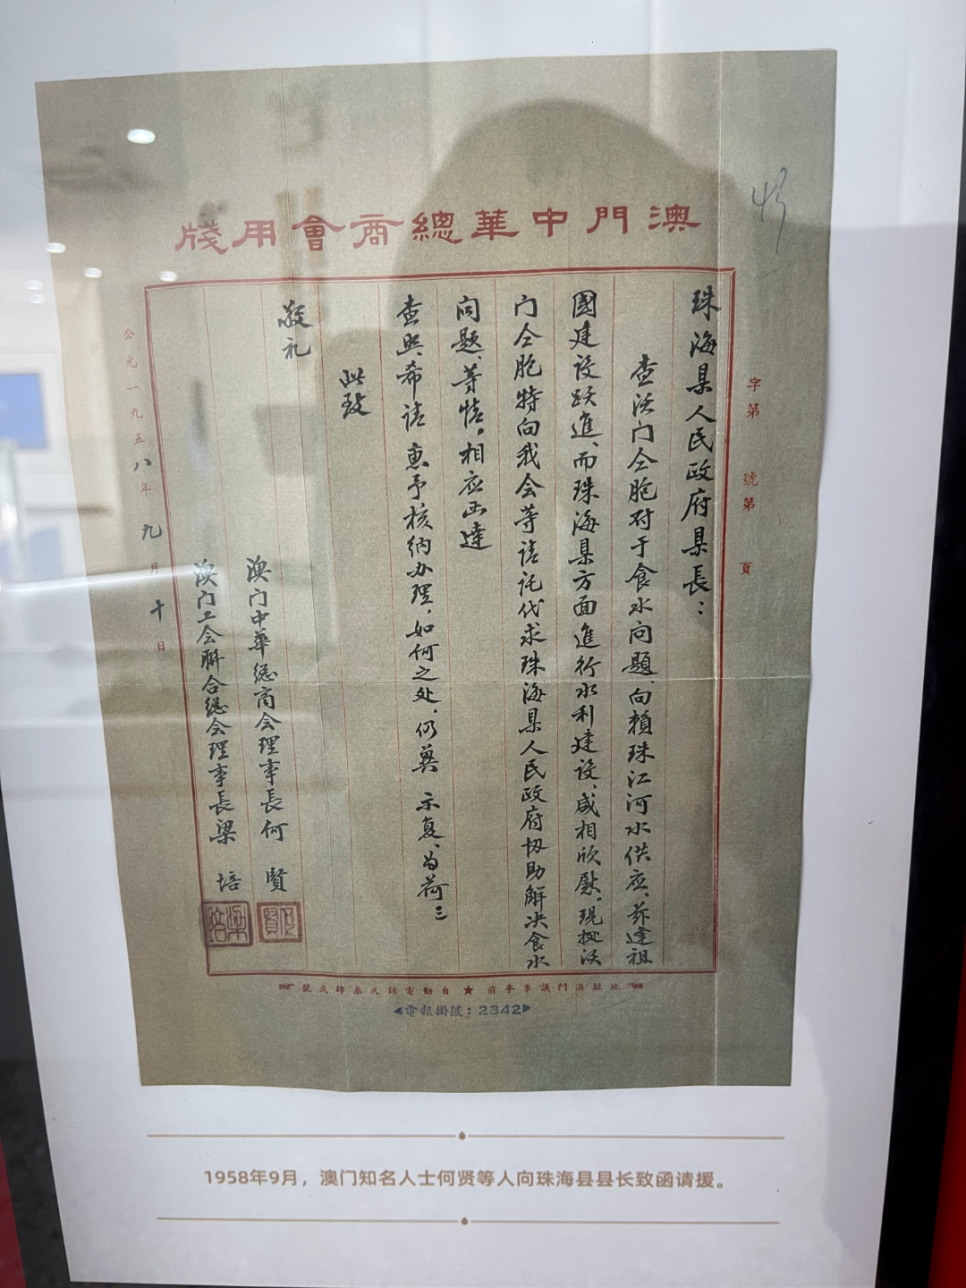 澳門中華總商會用牋
字第　號第　頁
珠海县人民政府县長：
查沃门仝胞对于食水问题、向赖珠江河水供应、兹逢祖
國建设跃進、而珠海县方面進行水利建设、咸相欣慰。现据沃
门仝胞特向我会等请託代求珠海县人民政府协助解决食水
问题、等情。相应函達
查照、希请 惠予核纳办理、如何之处、仍冀 示复、为荷
此致
敬礼
澳门中华總商会理事長何 賢
澳门工会聯合總会理事長梁 培
公元一九五八年九月十日
地址澳門議事亭前★自動電話弍叁肆弍號
◀電報掛號：2342▶
1958年9月，澳门知名人士何贤等人向珠海县县长致函请援。